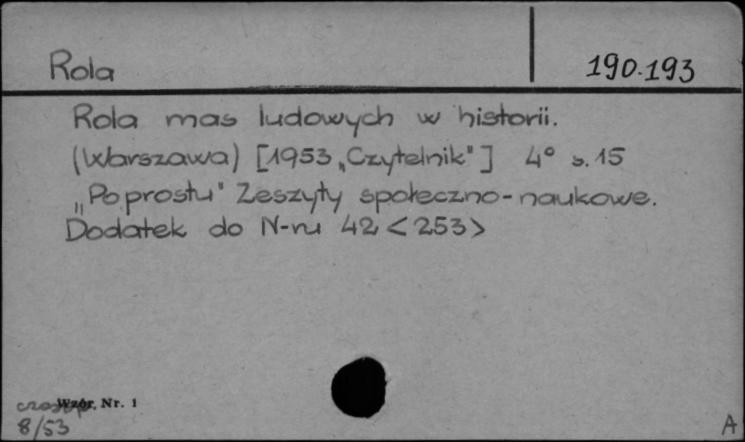 Rola
190.193
Rola mas ludowych w historii.
(Warszawa) [1953 „Czytelnik"] 4° s. 15
„Po prostu" Zeszyty społeczno-naukowe.
Dodatek do N-ru 42 <253>
Wzór, Nr. 1
8/53
A